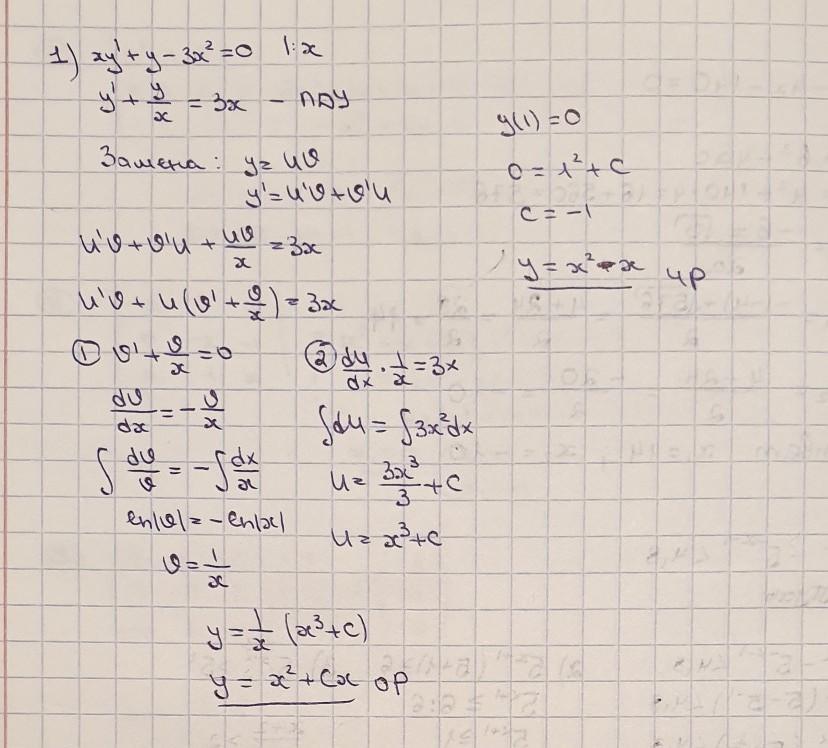 1) xy' + y - 3x² = 0 |:x
y' + y/x = 3x - ЛДУ
Замена: y = uϑ
y' = u'ϑ + ϑ'u
u'ϑ + ϑ'u + uϑ/x = 3x
u'ϑ + u(ϑ' + ϑ/x) = 3x
① ϑ' + ϑ/x = 0
dϑ/dx = -ϑ/x
∫ dϑ/ϑ = -∫ dx/x
ln|ϑ| = -ln|x|
ϑ = 1/x
② du/dx · 1/x = 3x
∫du = ∫3x²dx
u = 3x³/3 + C
u = x³ + C
y = 1/x (x³ + C)
y = x² + Cx ОР
y(1) = 0
0 = 1² + C
C = -1
y = x² - x ЧР